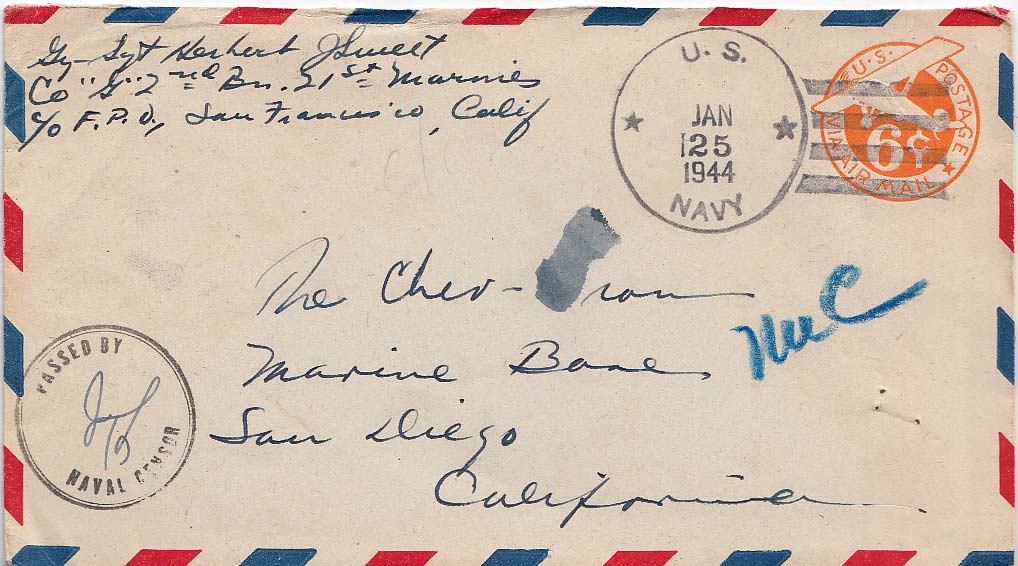 Gy-Sgt Herbert J Sweet
Co "G" 2nd Bn. 21st Marines
c/o F.P.O., San Francisco, Calif
U.S. NAVY
JAN
25
1944
U.S. POSTAGE
6¢
VIA AIR MAIL
The Chev-ron
Marine Base
San Diego
California
PASSED BY
NAVAL CENSOR